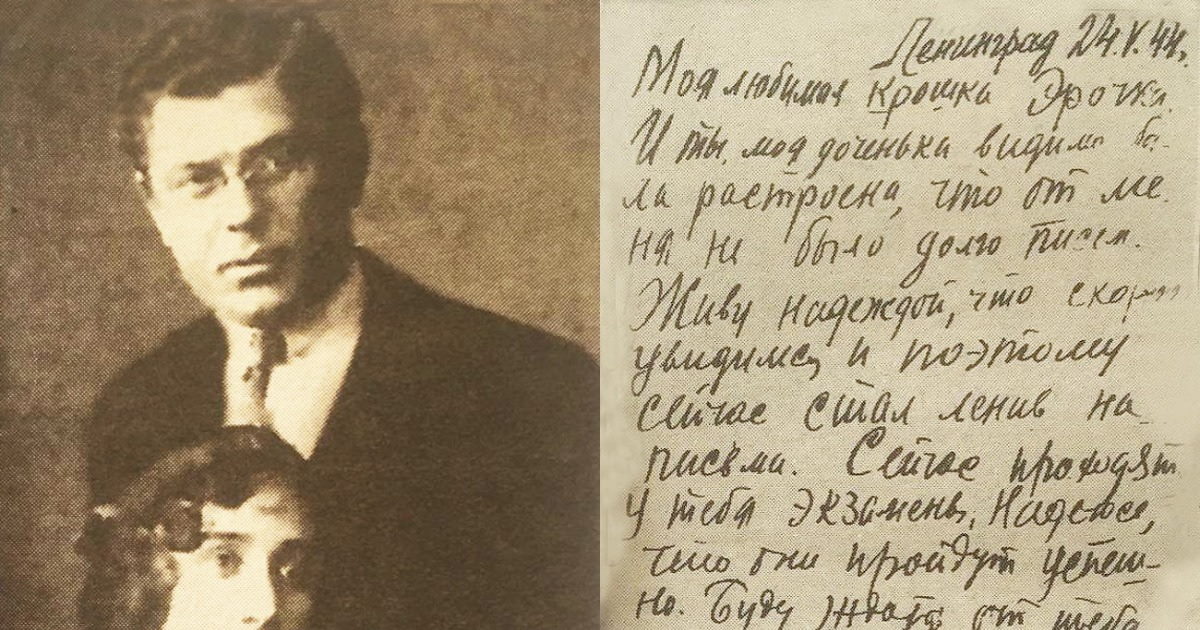 Ленинград 24.V.44г.
Моя любимая крошка Эрочка.
И ты, моя доченька видимо бы-
ла растроена, что от ме-
ня не было долго писем.
Живу надеждой, что скоро
увидимся, и поэтому
сейчас стал ленив на
письма. Сейчас проходят
у тебя экзамены. Надеюсь,
что они пройдут успеш-
но. Буду ждать от тебя